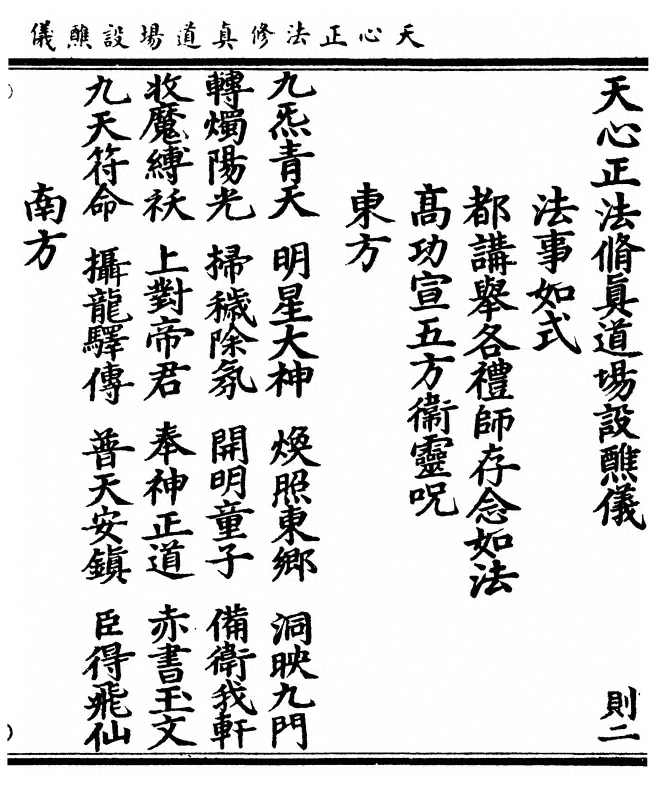 天心正法修真道場設醮儀
天心正法脩眞道場設醮儀　則二
法事如式
都講舉各禮師存念如法
髙功宣五方衞靈呪
東方
九炁青天　明星大神　煥照東鄉　洞映九門
轉燭陽光　掃穢除氛　開明童子　備衛我軒
收魔縛祅　上對帝君　奉神正道　赤書玉文
九天符命　攝龍驛傳　普天安鎮　臣得飛仙
南方